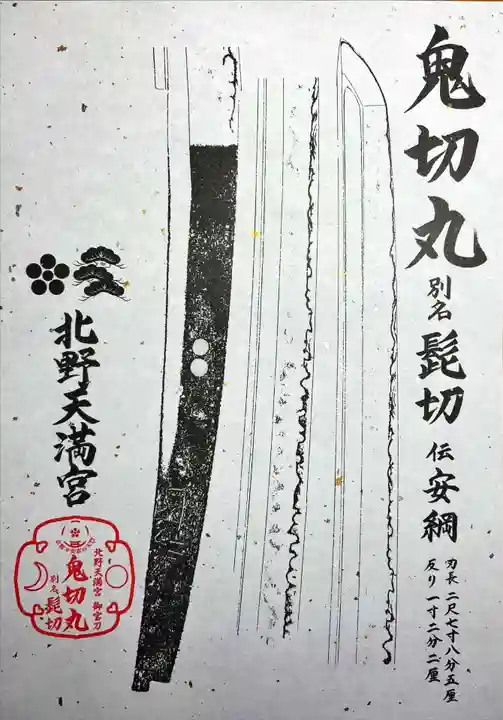 鬼切丸 別名 髭切 伝 安綱
刃長 二尺七寸八分五厘
反り 一寸二分二厘
北野天満宮
北野天満宮 御宝刀
鬼切丸
別名 髭切